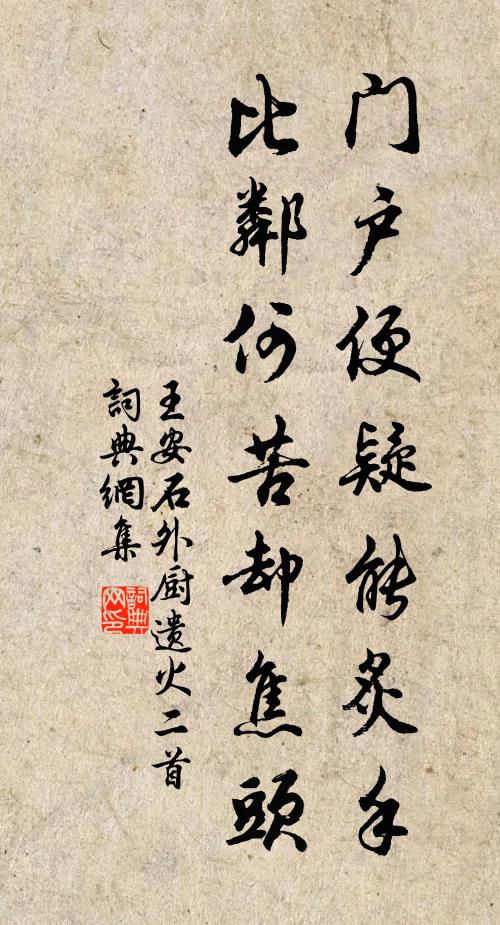 门户便疑能炙手
比鄰何苦却焦頭
王安石外厨遗火二首
詞典網集
詞典网印